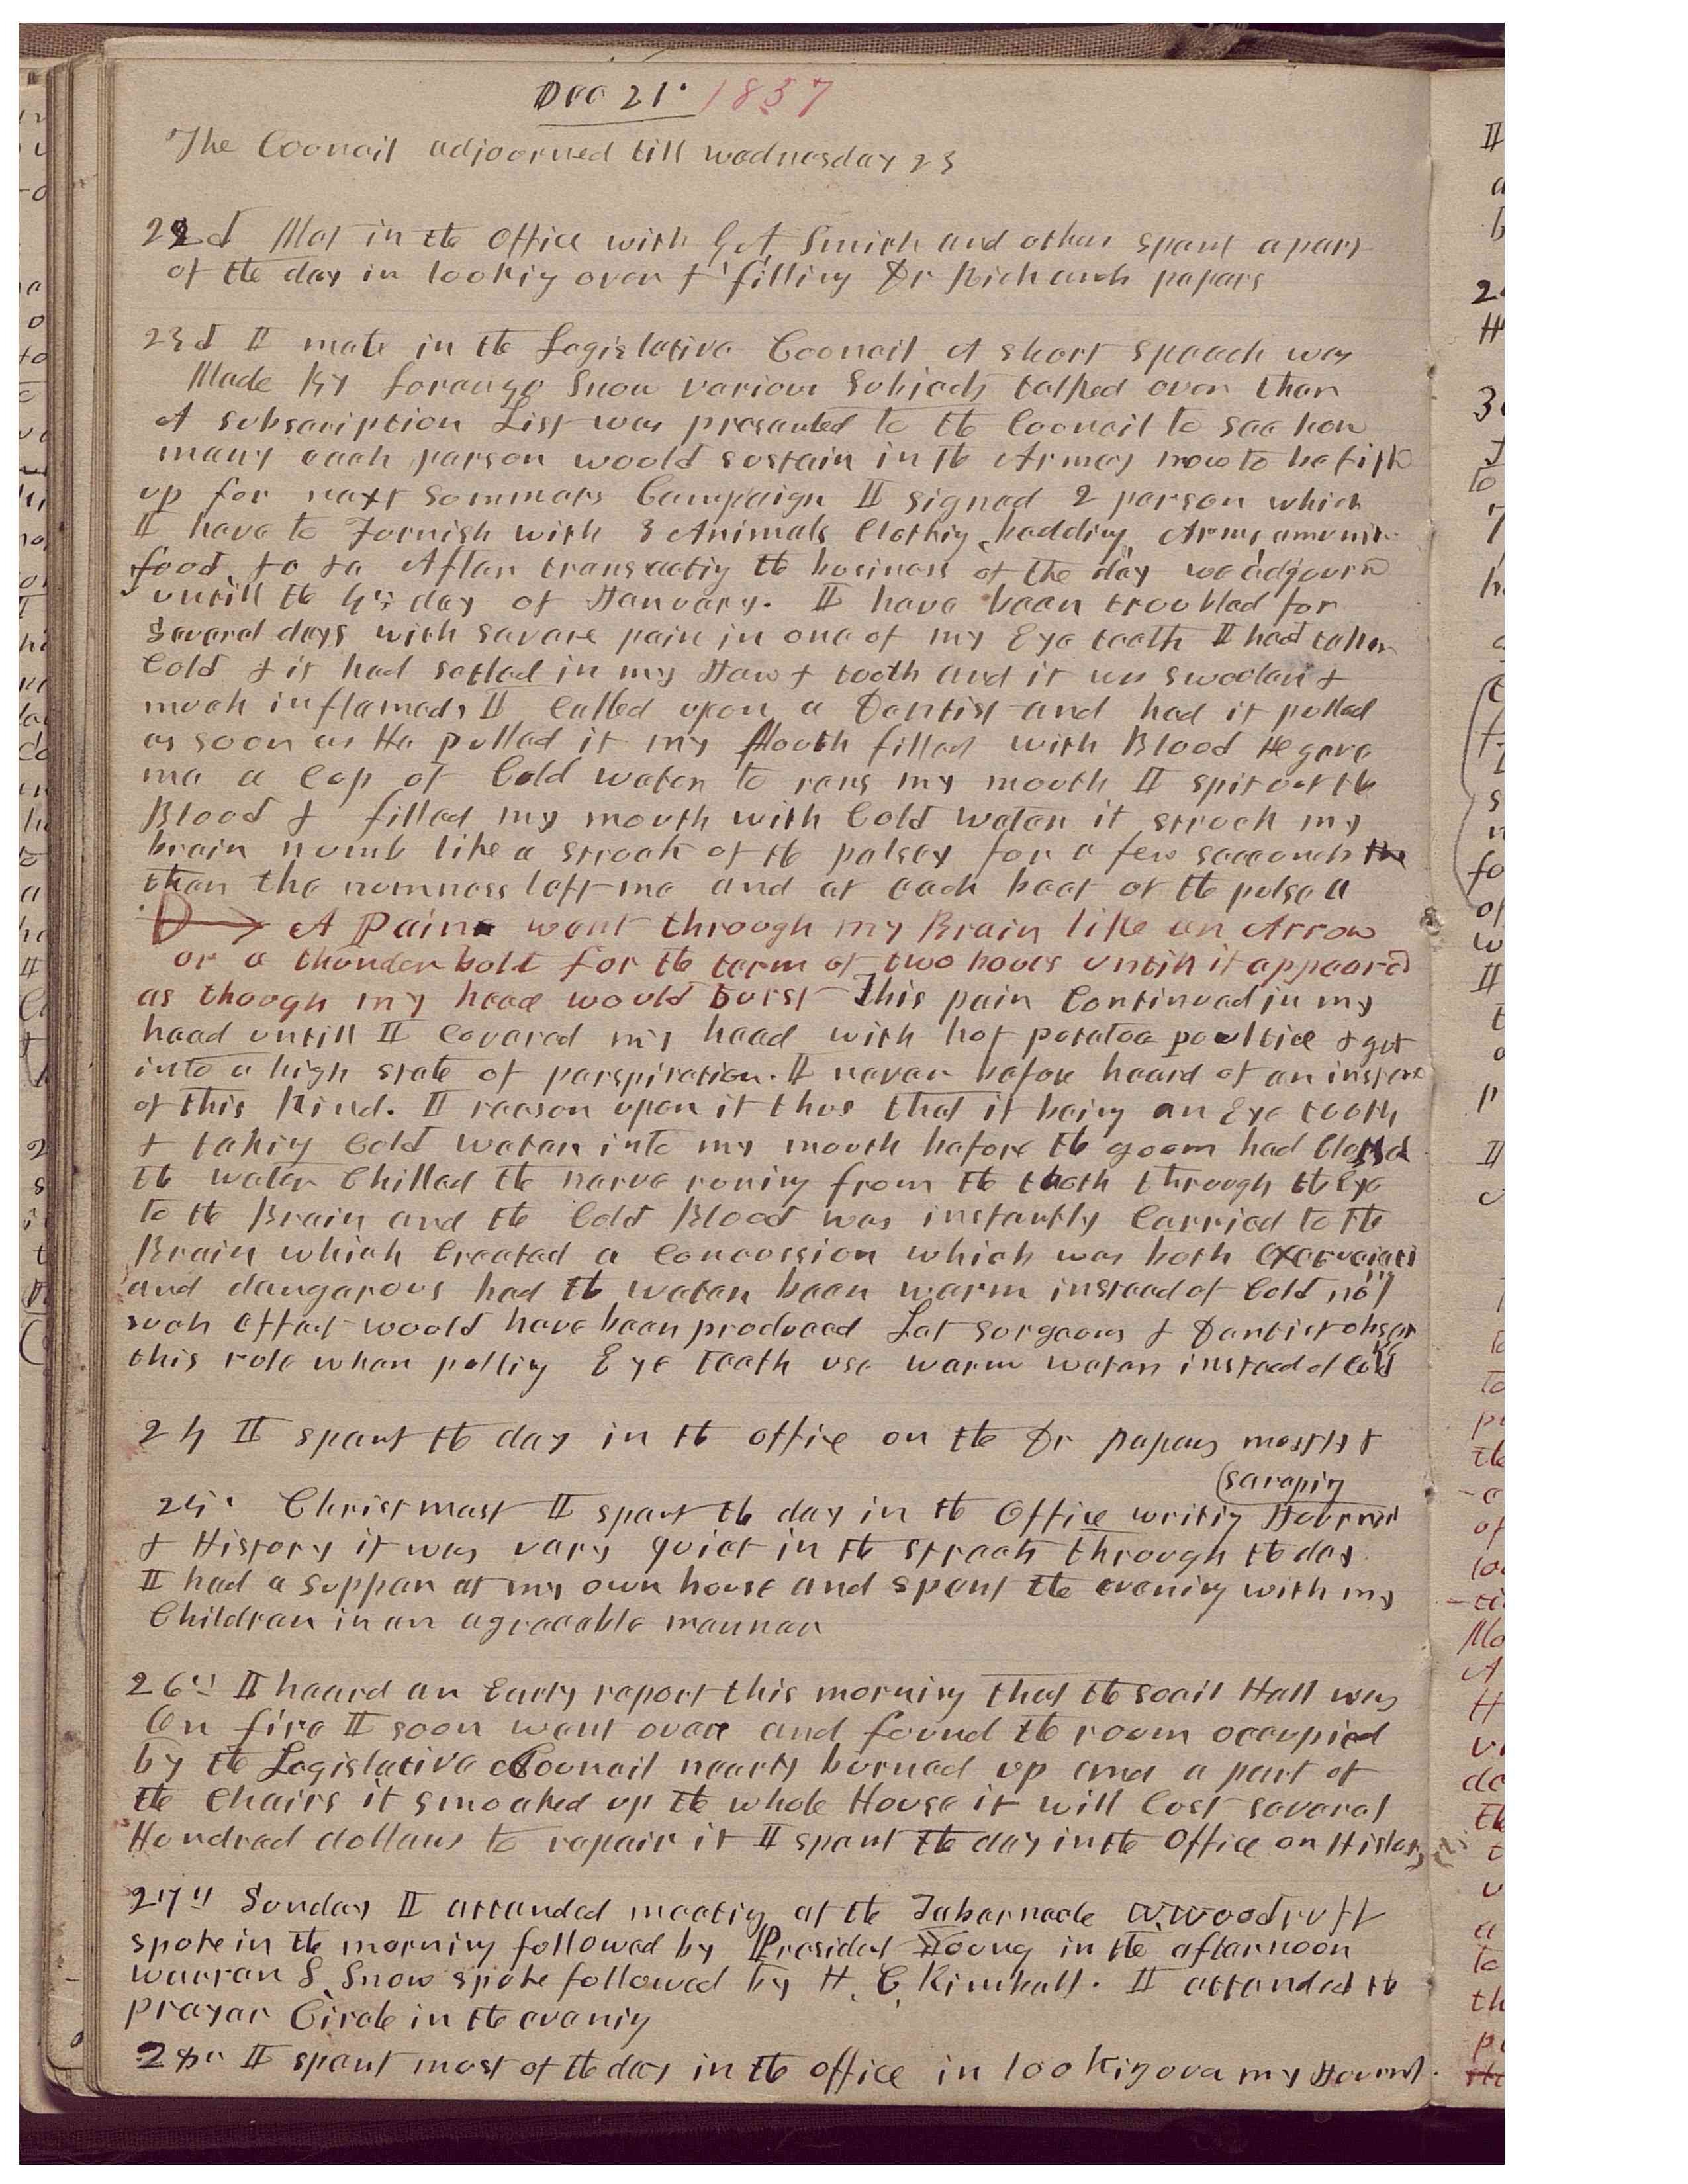 Dec 21. 1857
The Council adjourned till wednesday 23
22d Met in the office with G A Smith and others spent a part
of the day in looking over & filling Dr Richards papers
23d I mete in the Legislative Council A short speech was
Made by Lorenzo Snow various subjects talked over then
A subscription List was presented to the Council to see how
many each person would sustain in the Armey now to be fitt
up for next sommers Campaign I signed 2 person which
I have to Furnish with 3 Animals Clothing bedding Arms amunit-
food &c &c After transacting the business of the day we adjournd
untill the 4th day of January. I have been troubled for
several days with severe pain in one of my Eye teeth I had taken
Cold & it had setled in my Jaw & tooth and it was swoolen &
much inflamed, I Called upon a Dentist and had it pulled
as soon as He pulled it my Mouth filled with Blood He gave
me a Cup of Cold water to rens my mouth I spit out the
Blood & filled my mouth with Cold water it struck my
brain numb like a strook of the palsey for a few secconds the
then the numness left me and at each beat of the pulse a
A Pain went through my Brain like an Arrow
or a thunderbolt for the term of two hours untill it appeard
as though my head would burst This pain Continued in my
head untill I Covered my head with hot potatoe poultice & got
into a high state of perspiration. I never before heard of an instane
of this Kind. I reason upon it thus that it being an Eye tooth
& taking Cold water into my mouth before the goom had Clossed
the water Chilled the nerve runing from the tooth through the Eye
to the Brain and the Cold Blood was instantly Carried to the
Brain which Created a Concussion which was both excruciating
and dangerous had the water been warm instead of Cold no
such effect would have been produced Let Surgeons & Dentist observe
this rule when pulling Eye teeth use warm water instead of Cold
24 I spent the day in the office on the Dr papers mostly &
(scraping
25. Christmast I spent the day in the Office writing Journal
& History it was very quiet in the streets through the day
I had a supper at my own house and spent the evening with my
Children in an agreeable manner
26th I heard an Early report this morning that the Socil Hall was
On fire I soon went over and found the room occupied
by the Legislative Council nearly burned up and a part of
the Chairs it smoaked up the whole House it will Cost several
Hundred dollars to repair it I spent the day in the Office on History
27th Sunday I attended meeting at the Tabernacle W. Woodruff
spoke in the morning followed by President Young in the afternoon
warran S. Snow spoke followed by H. C. Kimball. I attended the
prayer Circle in the evening
28th I spent most of the day in the office in looking over my Journal.